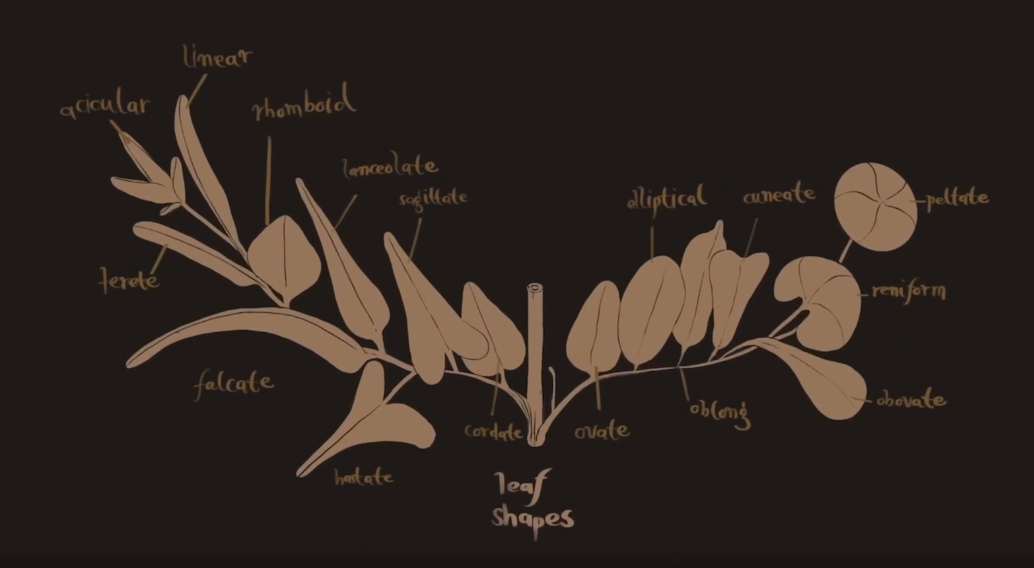 linear
acicular
rhomboid
lanceolate
sagittate
elliptical
cuneate
peltate
terete
reniform
falcate
obovate
oblong
cordate
ovate
hastate
leaf
shapes